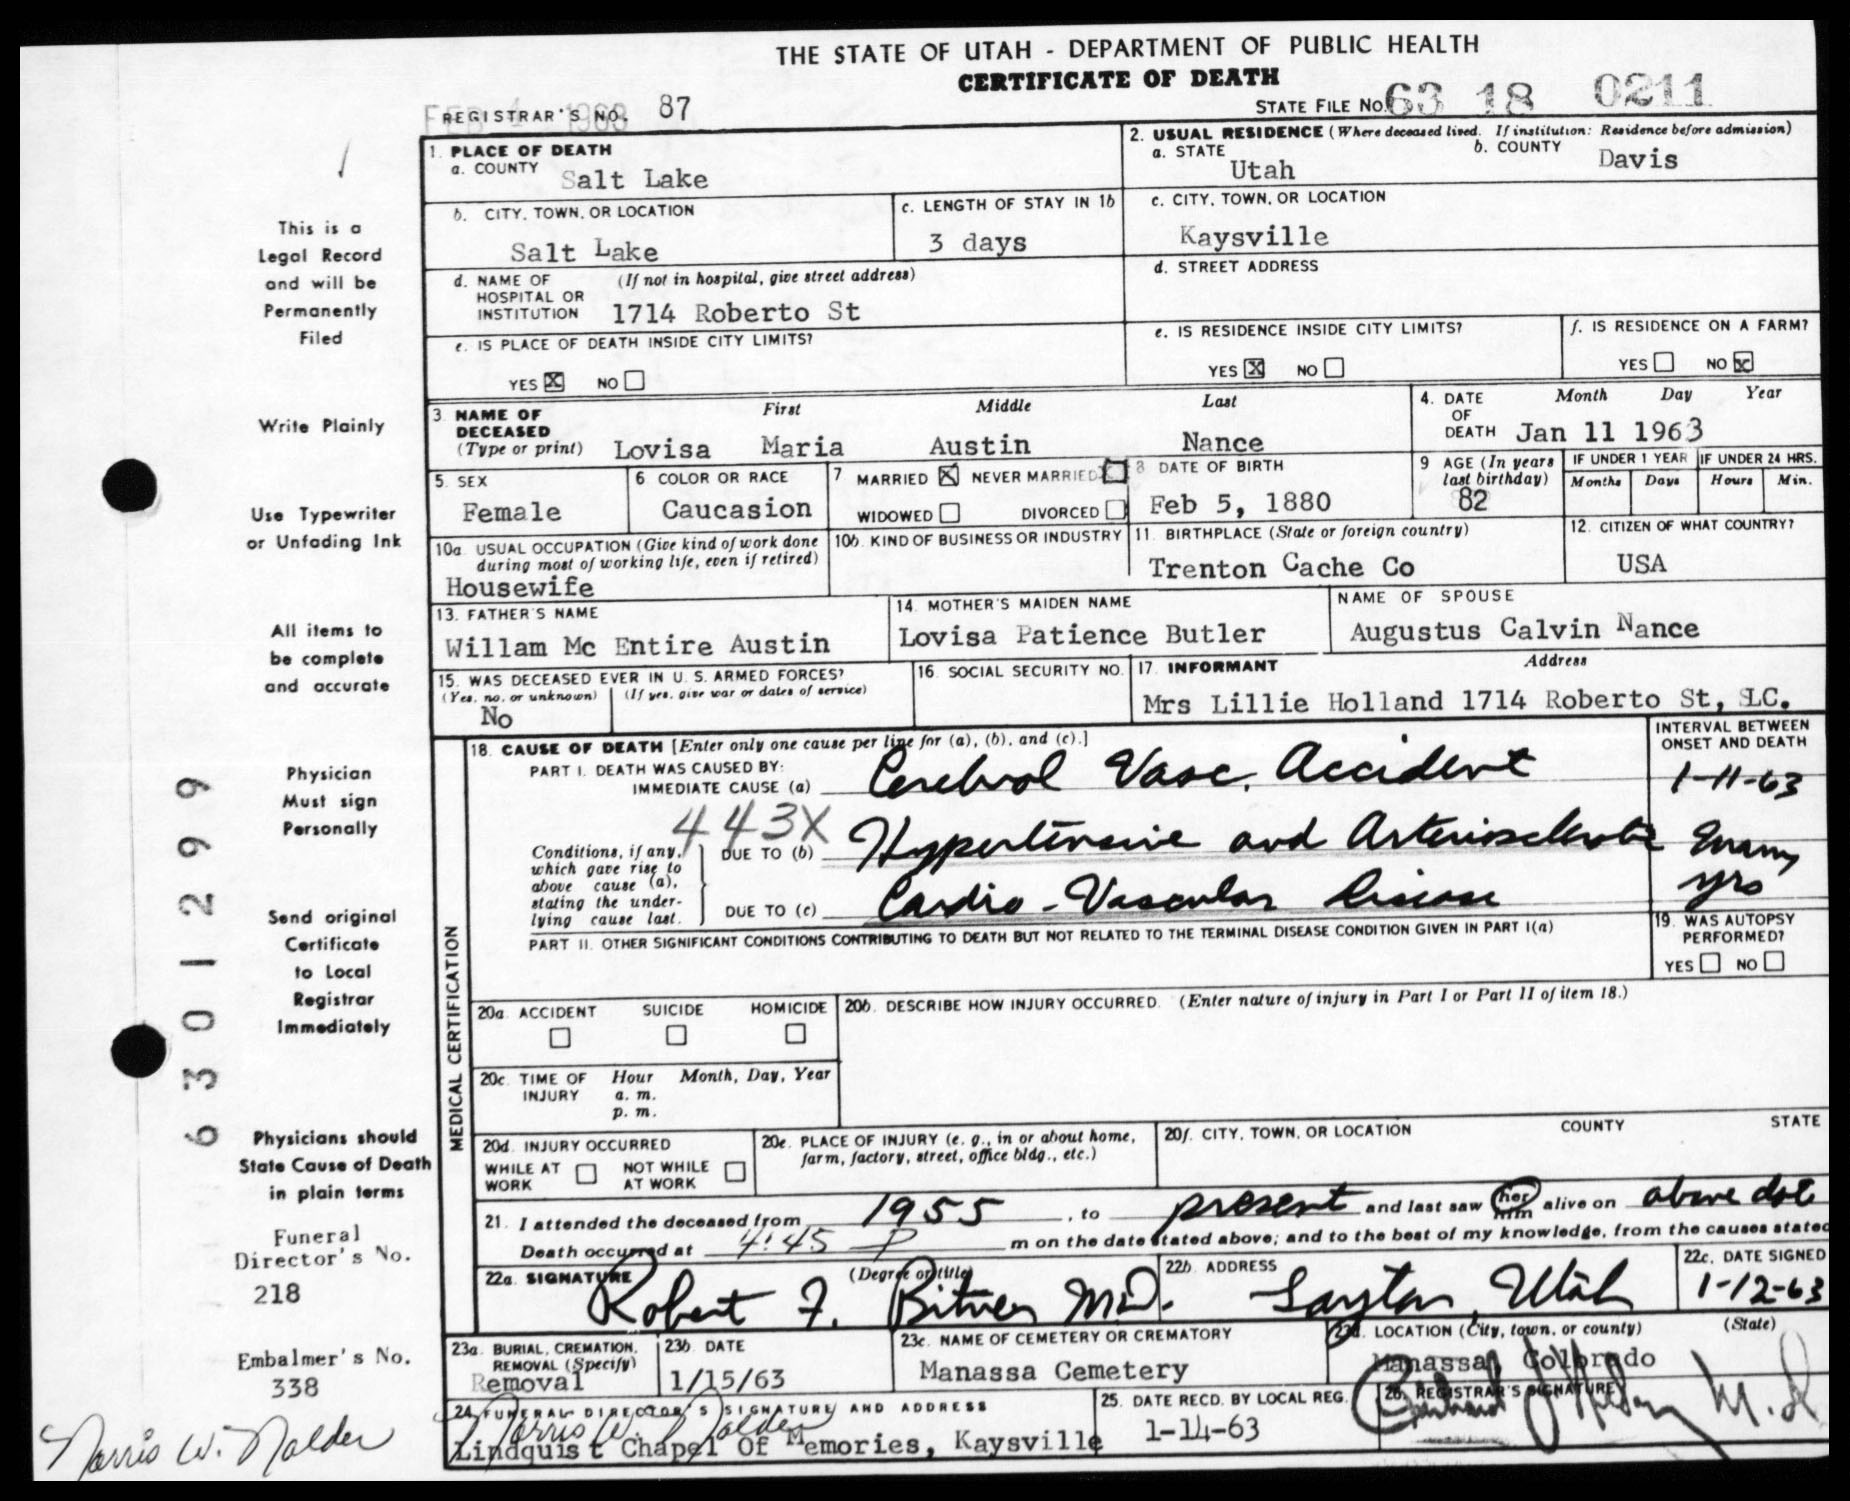 THE STATE OF UTAH - DEPARTMENT OF PUBLIC HEALTH
CERTIFICATE OF DEATH
FEB 4 1963
REGISTRAR'S NO. 87
STATE FILE NO. 63 18 0211
1. PLACE OF DEATH
a. COUNTY Salt Lake
2. USUAL RESIDENCE (Where deceased lived. If institution: Residence before admission)
a. STATE Utah
b. COUNTY Davis
b. CITY, TOWN, OR LOCATION
Salt Lake
c. LENGTH OF STAY IN 1b
3 days
c. CITY, TOWN, OR LOCATION
Kaysville
d. NAME OF HOSPITAL OR INSTITUTION (If not in hospital, give street address)
1714 Roberto St
d. STREET ADDRESS
e. IS PLACE OF DEATH INSIDE CITY LIMITS?
YES X NO
e. IS RESIDENCE INSIDE CITY LIMITS?
YES X NO
f. IS RESIDENCE ON A FARM?
YES NO X
3. NAME OF DECEASED (Type or print)
First Middle Last
Lovisa Maria Austin Nance
4. DATE OF DEATH Month Day Year
Jan 11 1963
5. SEX
Female
6 COLOR OR RACE
Caucasion
7 MARRIED X NEVER MARRIED
WIDOWED DIVORCED
8 DATE OF BIRTH
Feb 5, 1880
9 AGE (In years last birthday)
82
IF UNDER 1 YEAR
Months Days
IF UNDER 24 HRS.
Hours Min.
10a. USUAL OCCUPATION (Give kind of work done during most of working life, even if retired)
Housewife
10b. KIND OF BUSINESS OR INDUSTRY
11. BIRTHPLACE (State or foreign country)
Trenton Cache Co
12. CITIZEN OF WHAT COUNTRY?
USA
13. FATHER'S NAME
Willam Mc Entire Austin
14. MOTHER'S MAIDEN NAME
Lovisa Patience Butler
NAME OF SPOUSE
Augustus Calvin Nance
15. WAS DECEASED EVER IN U. S. ARMED FORCES?
(Yes, no, or unknown) (If yes, give war or dates of service)
No
16. SOCIAL SECURITY NO.
17. INFORMANT Address
Mrs Lillie Holland 1714 Roberto St, SLC.
MEDICAL CERTIFICATION
18. CAUSE OF DEATH [Enter only one cause per line for (a), (b), and (c).]
PART I. DEATH WAS CAUSED BY:
IMMEDIATE CAUSE (a) Cerebral Vasc. Accident
INTERVAL BETWEEN ONSET AND DEATH
1-11-63
443X
Conditions, if any, which gave rise to above cause (a), stating the underlying cause last.
DUE TO (b) Hypertensive and Arteriosclerotic
DUE TO (c) Cardio-Vascular Disease
many yrs
PART II. OTHER SIGNIFICANT CONDITIONS CONTRIBUTING TO DEATH BUT NOT RELATED TO THE TERMINAL DISEASE CONDITION GIVEN IN PART I(a)
19. WAS AUTOPSY PERFORMED?
YES NO
20a. ACCIDENT SUICIDE HOMICIDE
20b. DESCRIBE HOW INJURY OCCURRED. (Enter nature of injury in Part I or Part II of item 18.)
20c. TIME OF INJURY Hour Month, Day, Year
a. m.
p. m.
20d. INJURY OCCURRED
WHILE AT WORK NOT WHILE AT WORK
20e. PLACE OF INJURY (e. g., in or about home, farm, factory, street, office bldg., etc.)
20f. CITY, TOWN, OR LOCATION COUNTY STATE
21. I attended the deceased from 1955, to present and last saw her him alive on above date
Death occurred at 4:45 P m on the date stated above; and to the best of my knowledge, from the causes stated
22a. SIGNATURE (Degree or title)
Robert F. Bitner M.D.
22b. ADDRESS
Layton, Utah
22c. DATE SIGNED
1-12-63
23a. BURIAL, CREMATION, REMOVAL (Specify)
Removal
23b. DATE
1/15/63
23c. NAME OF CEMETERY OR CREMATORY
Manassa Cemetery
23d. LOCATION (City, town, or county) (State)
Manassa, Colorado
24. FUNERAL DIRECTOR'S SIGNATURE AND ADDRESS
Norris W. Nalder
Lindquist Chapel Of Memories, Kaysville
25. DATE RECD. BY LOCAL REG.
1-14-63
26. REGISTRAR'S SIGNATURE
M.D
This is a
Legal Record
and will be
Permanently
Filed
Write Plainly
Use Typewriter
or Unfading Ink
All items to
be complete
and accurate
Physician
Must sign
Personally
Send original
Certificate
to Local
Registrar
Immediately
Physicians should
State Cause of Death
in plain terms
Funeral
Director's No.
218
Embalmer's No.
338
Norris W. Nalder
6301299